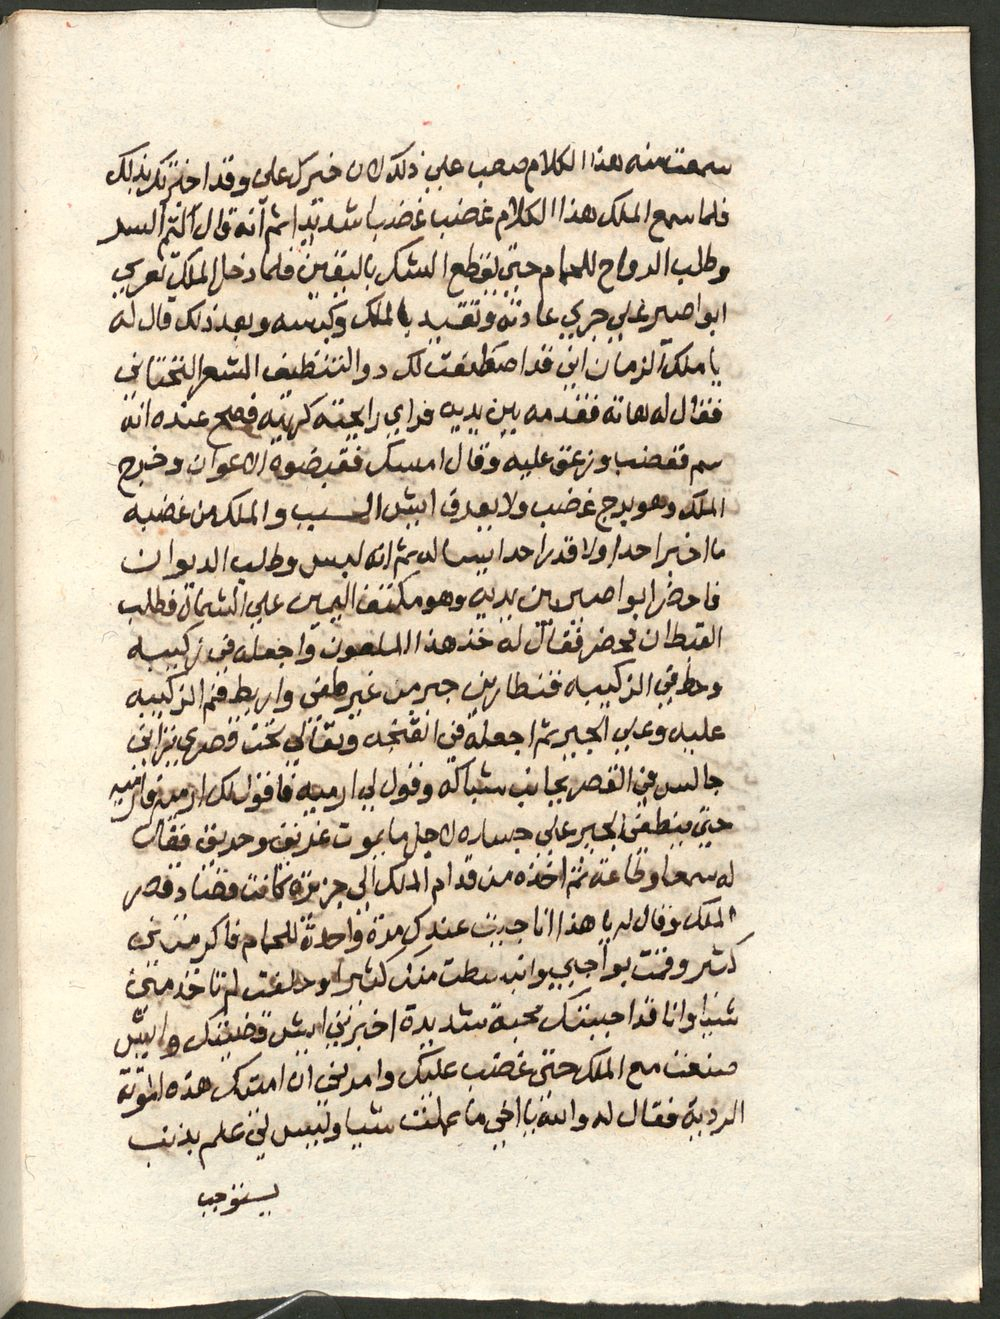 سمعت منه هذا الكلام صعب علي ذلك لان خيرك علي وقد اخبرتك بذلك
فلما سمع الملك هذا الكلام غضب غضبا شديدا ثم انه قال اكتم السر
وطلب الرواح للحمام حتي يقطع الشك باليقين فلما دخل الملك تعري
ابو اصير علي جري عادته وتقيد بالملك وكبسه وبعد ذلك قال له
يا ملك الزمان اني قد اصطنعت لك دوا لتنظيف الشعر التحتاني
فقال له هاته فقدمه بين يديه فراي رايحته كريهه فصح عنده انه
سم فغضب وزعق عليه وقال امسك فقبضوه الاعوان وخرج
الملك وهو يرج غضب ولا يعرف ايش السبب والملك من غضبه
ما اخبر احدا ولا قدر احدا يساله ثم انه لبس وطلب الديوان
فاحضر ابو اصير بين يديه وهو مكتف اليمين علي الشمال فطلب
القبطان فحضر فقال له خذ هذا الملعون واجعله في زكيبه
وحط في الزكيبه قنطارين جير من غير طفي واربط فم الزكيبه
عليه وعلي الجير ثم اجعله في الفتخه وتعالي تحت قصري تراني
جالس في القصر بجانب شباكه وقول لي ارميه فاقول لك ارميه فارميه
حتي ينطفي الجير علي جساره لاجل ما يموت غريق وحريق فقال
له سمعا وطاعة ثم اخذه من قدام الملك الي جزيرة كانت قصاد قصر
الملك وقال له يا هذا انا جيت عندك مرة واحدة للحمام فاكرمتني
كثير وقمت بواجبي وانبسطت منك كثيرا وحلفت لم تاخذ مني
شيا وانا قد احببتك محبة شديدة اخبرني ايش قضيتك وايش
صنعت مع الملك حتي غضب عليك وامرني ان امتك هذه الموتة
الردية فقال له والله يا اخي ما عملت شيا وليس لي علم بذنب
يستوجب